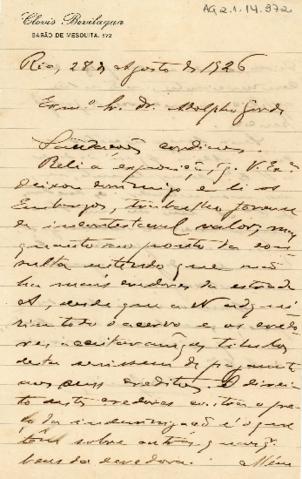 AG 2.1.14.972
Clovis Bevilaqua
BARÃO DE MESQUITA, 572
Rio, 28 de Agosto de 1926
Exmº Sr. Dr. Adolpho Gordo
Saudações cordiaes.
Reli a exposição, q. V. Exª
deixou commigo e li os
Embargos, trabalho forense
de incontestavel valor, mas
quanto ao ponto da con-
sulta entendo que não
ha mais credores da estrada
A, desde que a N adqui-
riu todo o acervo e os credo-
res acceitaram, os titulos
desta servissem de pagamento
aos seus creditos. O direi-
to destes credores
da indemnização é o que
têm sobre outros, quaesquer
bens da devedora. Além